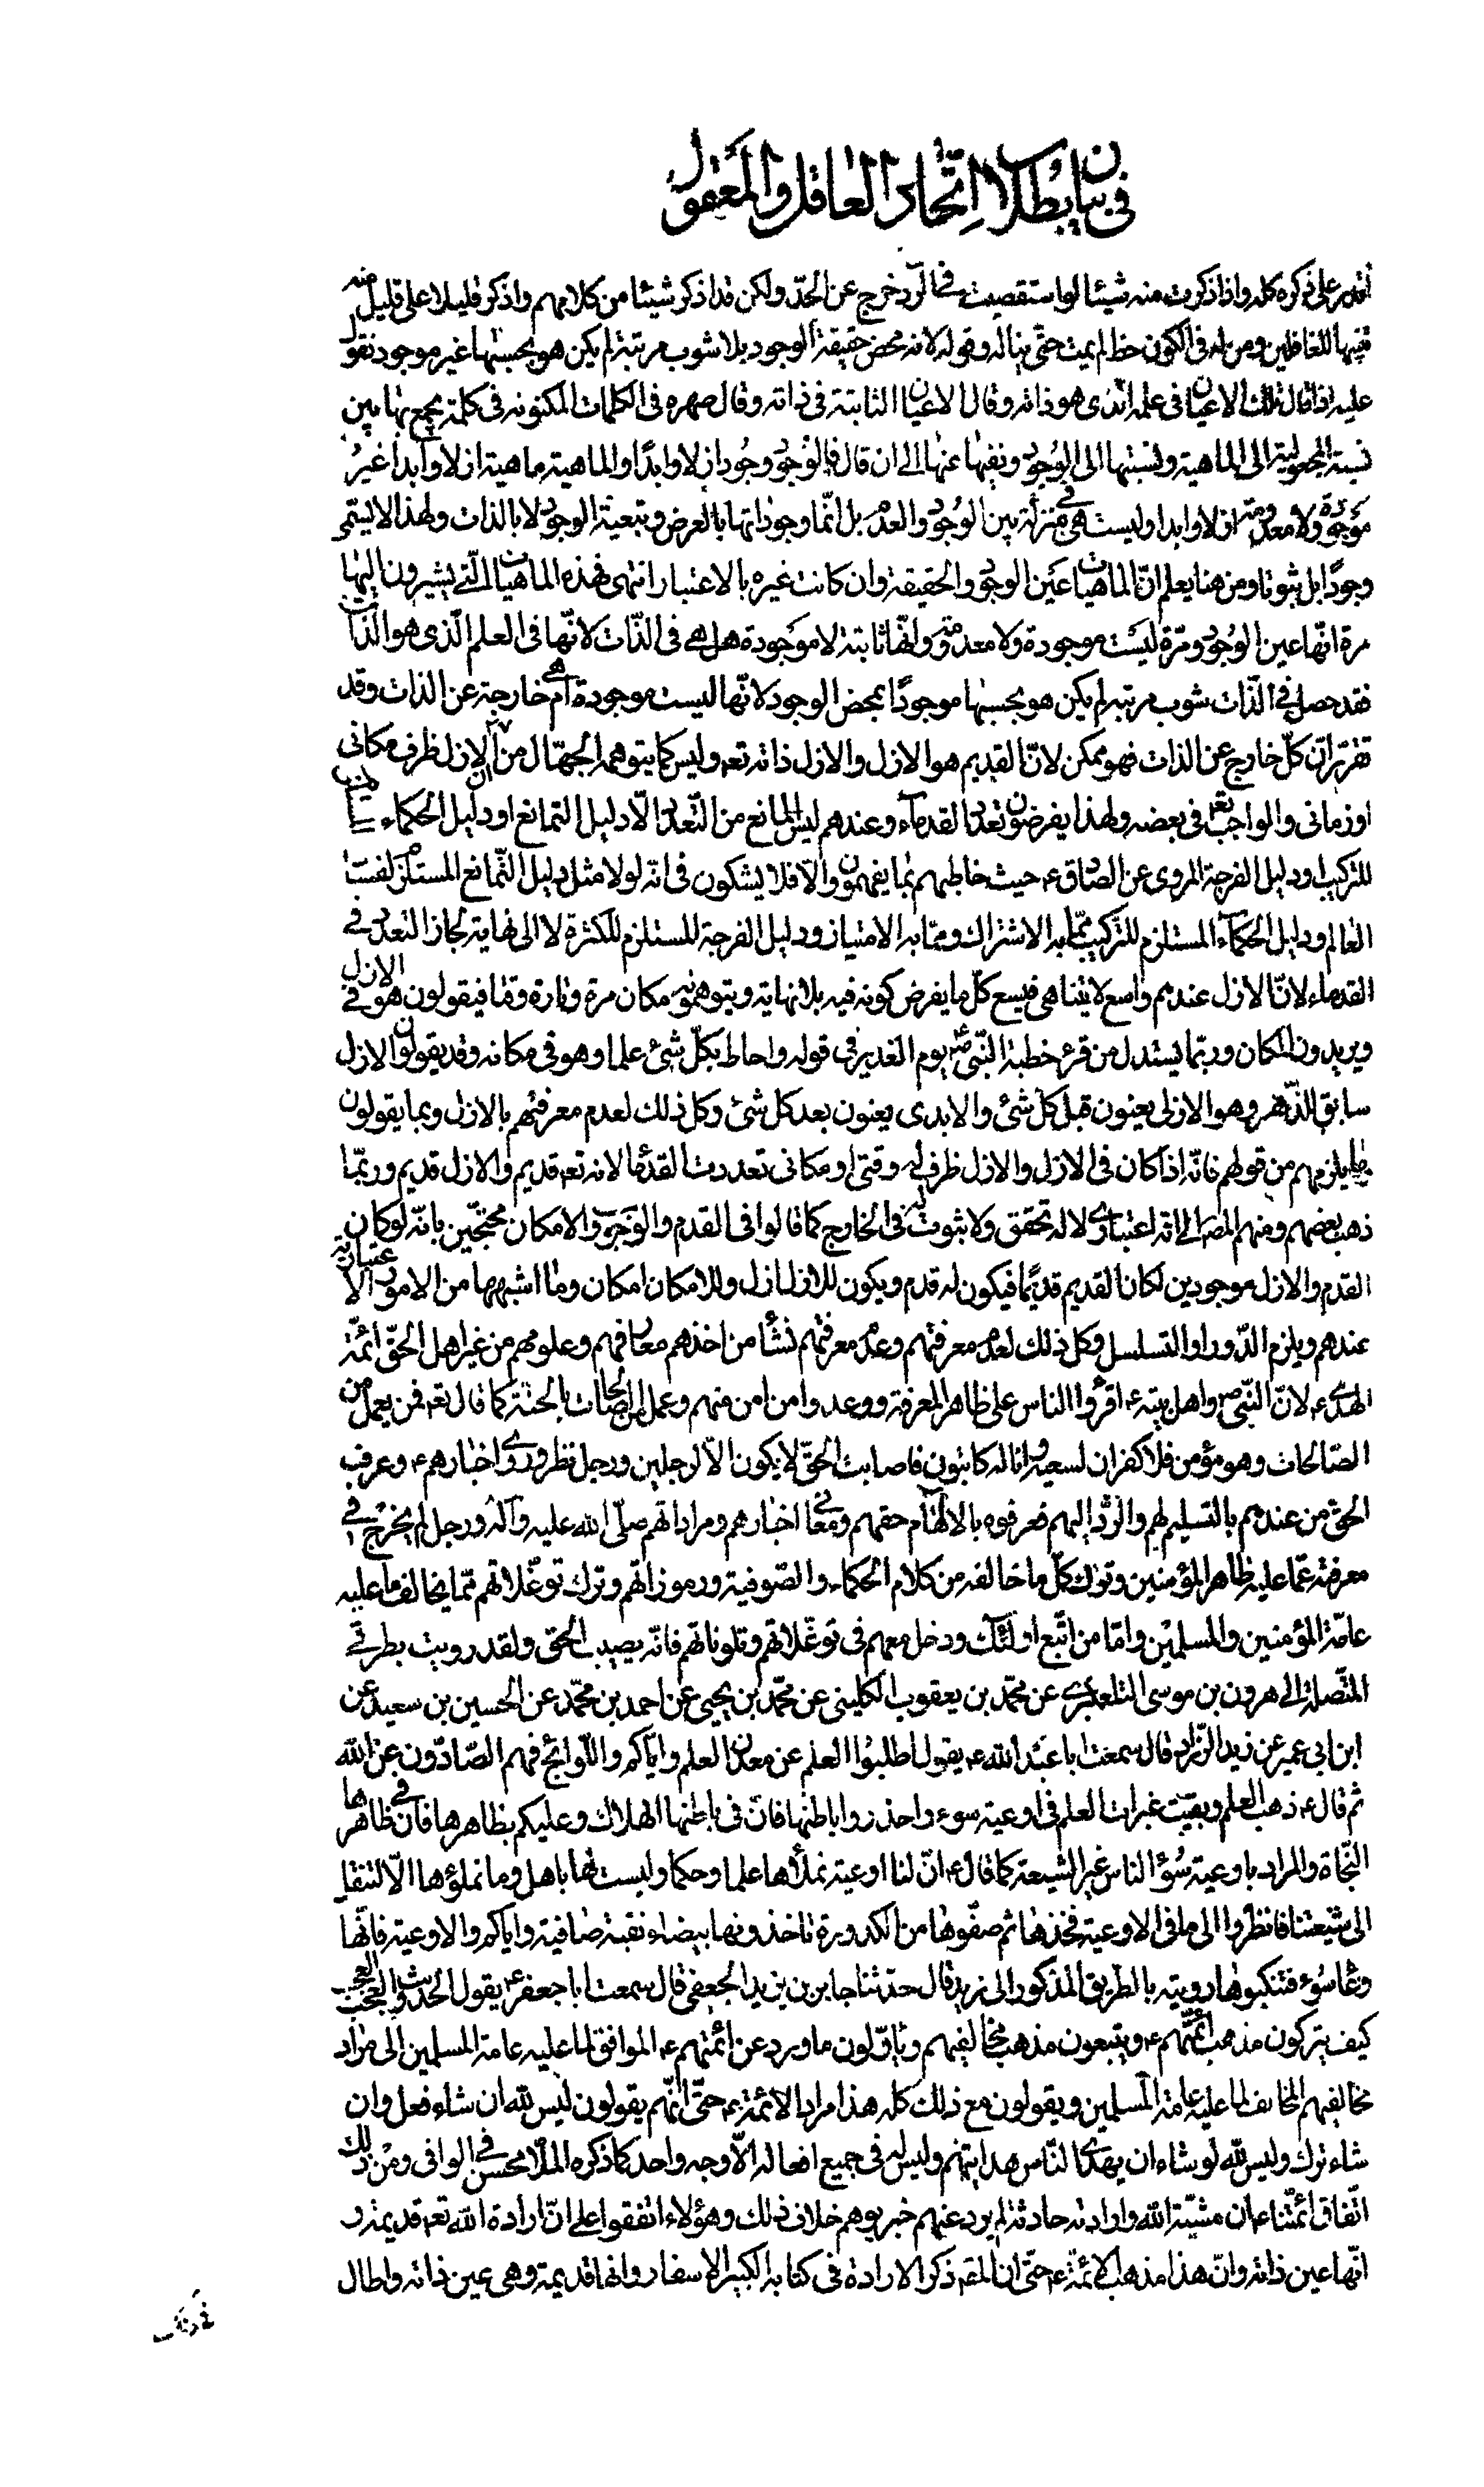 في بيان بطلان اتّحاد العاقل والمعقول
اقدر على ذكره كله واذا ذكرت منه شيئا لو استقصيت في الرّد خرج عن الحدّ ولكن قد اذكر شيئا من كلامهم واذكر قليلا على قليل منه
تنبيها للغافلين ومن له في الكون حظ لم يمت حتّى يناله وقوله لانه محض حقيقة الوجود بلا شوب مرتبة لم يكن هو بحسبها غير موجود نقول
عليه اذا قال تلك الاعيان في علمه الّذي هو ذاته وقال الاعيان الثابتة في ذاته وقال صهره في الكلمات المكنونه في كلمة يجمع بها بين
نسبة المجعولية الى الماهية ونسبتها الى الوجود ونفيها عنها الى ان قال فالوجود وجود ازلا وابدًا والماهية ماهية ازلا وابدا غير
موجودة ولا معدومة ازلا وابدا وليست هي في منزلة بين الوجود والعدم بل انّما وجوداتها بالعرض وبتبعية الوجود لا بالذات ولهذا لا يسمّى
وجودًا بل ثبوتا ومن هنا يعلم انّ الماهيات عين الوجود والحقيقة وان كانت غيره بالاعتبار انتهى فهذه الماهيات الّتي يشيرون اليها
مرة انّها عين الوجود ومرّة ليست موجودة ولا معدومة وانّها ثابتة لا موجودة هل هي في الذّات لانّها في العلم الّذي هو الذات
فقد حصل في الذّات شوب مرتبة لم يكن هو بحسبها موجودًا بمحض الوجود لانّها ليست موجودة ام هي خارجة عن الذات وقد
تقرّر انّ كلّ خارج عن الذات فهو ممكن لانّ القديم هو الازل والازل ذاته تعه وليس كما يتوهمه الجهّال من ان الازل ظرف مكاني
او زماني والواجب تعه في بعضه ولهذا يفرضون تعدد القدماء وعندهم ليس المانع من التّعدد الّا دليل التمانع او دليل الحكماء
للتركيب او دليل الفرجة المروي عن الصّادق ع حيث خاطبهم بما يفهمون والّا فلا يشكون في انّه لولا مثل دليل التّمانع المستلزم لفساد
العالم ودليل الحكماء المستلزم للتركيب ممّا به الاشتراك وممّا به الامتياز ودليل الفرجة المستلزم للكثرة لا الى نهاية لجاز التعدد في
القدماء لانّ الازل عندهم واسع لا يتناهى فيسع كلّ ما يفرض كونه فيه بلا نهاية ويتوهمونه مكان مرة وتارة وقتا فيقولون هو في الازل
ويريدون المكان وربّما يستدل من قرء خطبة النّبي ص يوم الغدير في قوله واحاط بكلّ شيء علما وهو في مكانه وقد يقولون الازل
سابق الدّهر وهو الازلي يعنون قبل كل شيء والابدي يعنون بعد كل شيء وكل ذلك لعدم معرفتهم بالازل وبما يقولون
بما يلزمهم من قولهم فانّه اذا كان في الازل والازل ظرف له وقتي او مكاني تعددت القدما لانه تعه قديم والازل قديم وربّما
ذهب بعضهم ومنهم المصه الى انه اعتباري لا له تحقق ولا ثبوت له في الخارج كما قالوا في القدم والوجوب والامكان محتجّين بانّه لو كان
القدم والازل موجودين لكان القديم قديمًا فيكون له قدم ويكون للازل ازل وللامكان امكان وما اشبهها من الامور الاعتبارية
عندهم ويلزم الدّور او التسلسل وكل ذلك لعدم معرفتهم وعدم معرفتهم نشأ من اخذهم معارفهم وعلومهم من غير اهل الحقّ ائمّة
الهدى ع لانّ النّبي ص واهل بيته ع اقرّوا الناس على ظاهر المعرفة ووعدوا من امن منهم وعمل الصالحات بالجنّة كما قال تعه فمن يعمل من
الصّالحات وهو مؤمن فلا كفران لسعيه وانا له كاتبون فاصابت الحقّ لا يكون الّا لرجلين رجل نظر وروى اخبارهم ع وعرف
الحق من عندهم بالتسليم لهم والرّد اليهم فعرفوه بالالهام حقهم ومعاني اخبارهم ومراداتهم صلّى الله عليه وآله ورجل لم يخرج في
معرفته عمّا عليه ظاهر المؤمنين وترك كلّ ما خالفه من كلام الحكماء والصّوفية ورموزاتهم وترك توغّلاتهم ممّا يخالف ما عليه
عامّة المؤمنين والمسلمين وامّا من اتّبع اولئك ودخل معهم في توغّلاتهم وتلوناتهم فانّه يصيب الحق ولقد رويت بطرقي
المتّصلة الى هرون بن موسى التلعكبري عن محمّد بن يعقوب الكليني عن محمّد بن يحيى عن احمد بن محمّد عن الحسين بن سعيد عن
ابن ابي عمير عن زيد الزّراد قال سمعت ابا عبد الله ع يقول اطلبوا العلم عن معدن العلم واياكم والولائج فهم الصّادّون عن الله
ثم قال ع ذهب العلم وبقيت غبرات العلم في اوعية سوء واحذروا باطنها فانّ في باطنها الهلاك وعليكم بظاهرها فانّ في ظاهرها
النّجاة والمراد باوعية سوء الناس غير الشيعة كما قال ع انّ لنا اوعية نملأها علما وحكما وليست لها باهل وما نملؤها الّا لتنقل
الى شيعتنا فانظروا الى ما في الاوعية فخذوها ثم صفّوها من الكدورة تاخذونها بيضاء نقية صافية واياكم والاوعية فانّها
وعاء سوء فتنكبوها رويته بالطريق المذكور الى زيد قال حدّثنا جابر بن يزيد الجعفي قال سمعت ابا جعفر ع يقول الحديث والعجب العجب
كيف يتركون مذهب ائمّتهم ع ويتبعون مذهب مخالفيهم ويأوّلون ما ورد عن ائمتهم ع الموافق لما عليه عامة المسلمين الى مراد
مخالفيهم المخالف لما عليه عامة المسلمين ويقولون مع ذلك كله هذا مراد الائمّة ع حتّى انّهم يقولون ليس لله ان شاء فعل وان
شاء ترك وليس لله لو شاء ان يهدي النّاس هدايتهم وليس له في جميع افعاله الّا وجه واحد كما ذكره الملّا محسن في الوافي ومن ذلك
اتّفاق ائمّتنا ع ان مشيّة الله وارادته حادثة لم يرد عنهم خبر يوهم خلاف ذلك وهؤلاء اتفقوا على انّ ارادة الله تعه قديمة و
انّها عين ذاته وانّ هذا مذهب الائمّة ع حتّى ان المصه ذكر الارادة في كتابه الكبير الاسفار وانها قديمة وهي عين ذاته واطال